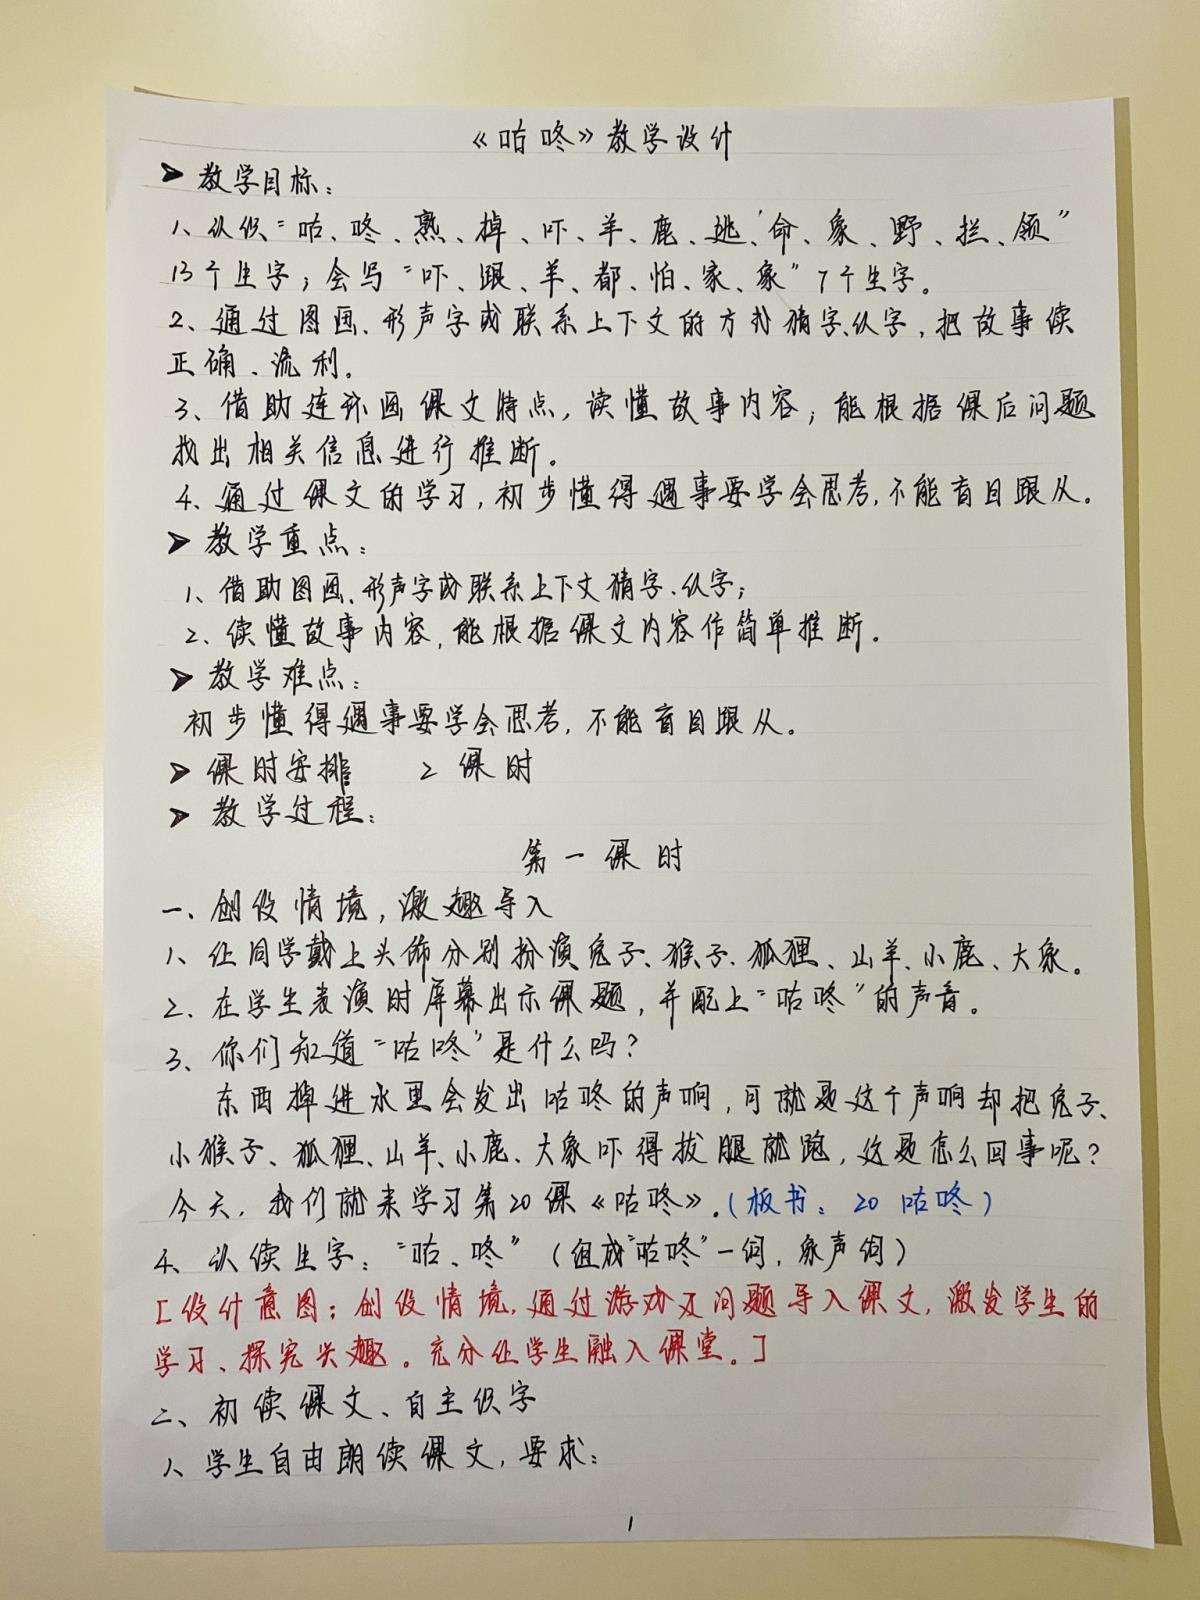 《咕咚》教学设计
➤ 教学目标：
1、认识“咕、咚、熟、掉、吓、羊、鹿、逃、命、象、野、拦、领”
13个生字；会写“吓、跟、羊、都、怕、家、象”7个生字。
2、通过图画、形声字或联系上下文的方式猜字、认字，把故事读
正确、流利。
3、借助连环画课文特点，读懂故事内容；能根据课后问题
找出相关信息进行推断。
4、通过课文的学习，初步懂得遇事要学会思考，不能盲目跟从。
➤ 教学重点：
1、借助图画、形声字或联系上下文猜字、认字；
2、读懂故事内容，能根据课文内容作简单推断。
➤ 教学难点：
初步懂得遇事要学会思考，不能盲目跟从。
➤ 课时安排 2课时
➤ 教学过程：
第一课时
一、创设情境，激趣导入
1、让同学戴上头饰分别扮演兔子、猴子、狐狸、山羊、小鹿、大象。
2、在学生表演时屏幕出示课题，并配上“咕咚”的声音。
3、你们知道“咕咚”是什么吗？
东西掉进水里会发出咕咚的声响，可就是这个声响却把兔子、
小猴子、狐狸、山羊、小鹿、大象吓得拔腿就跑，这是怎么回事呢？
今天，我们就来学习第20课《咕咚》。（板书：20 咕咚）
4、认读生字：“咕、咚”（组成“咕咚”一词，象声词）
[设计意图：创设情境，通过游戏及问题导入课文，激发学生的
学习、探究兴趣。充分让学生融入课堂。]
二、初读课文、自主识字
1、学生自由朗读课文，要求：
1